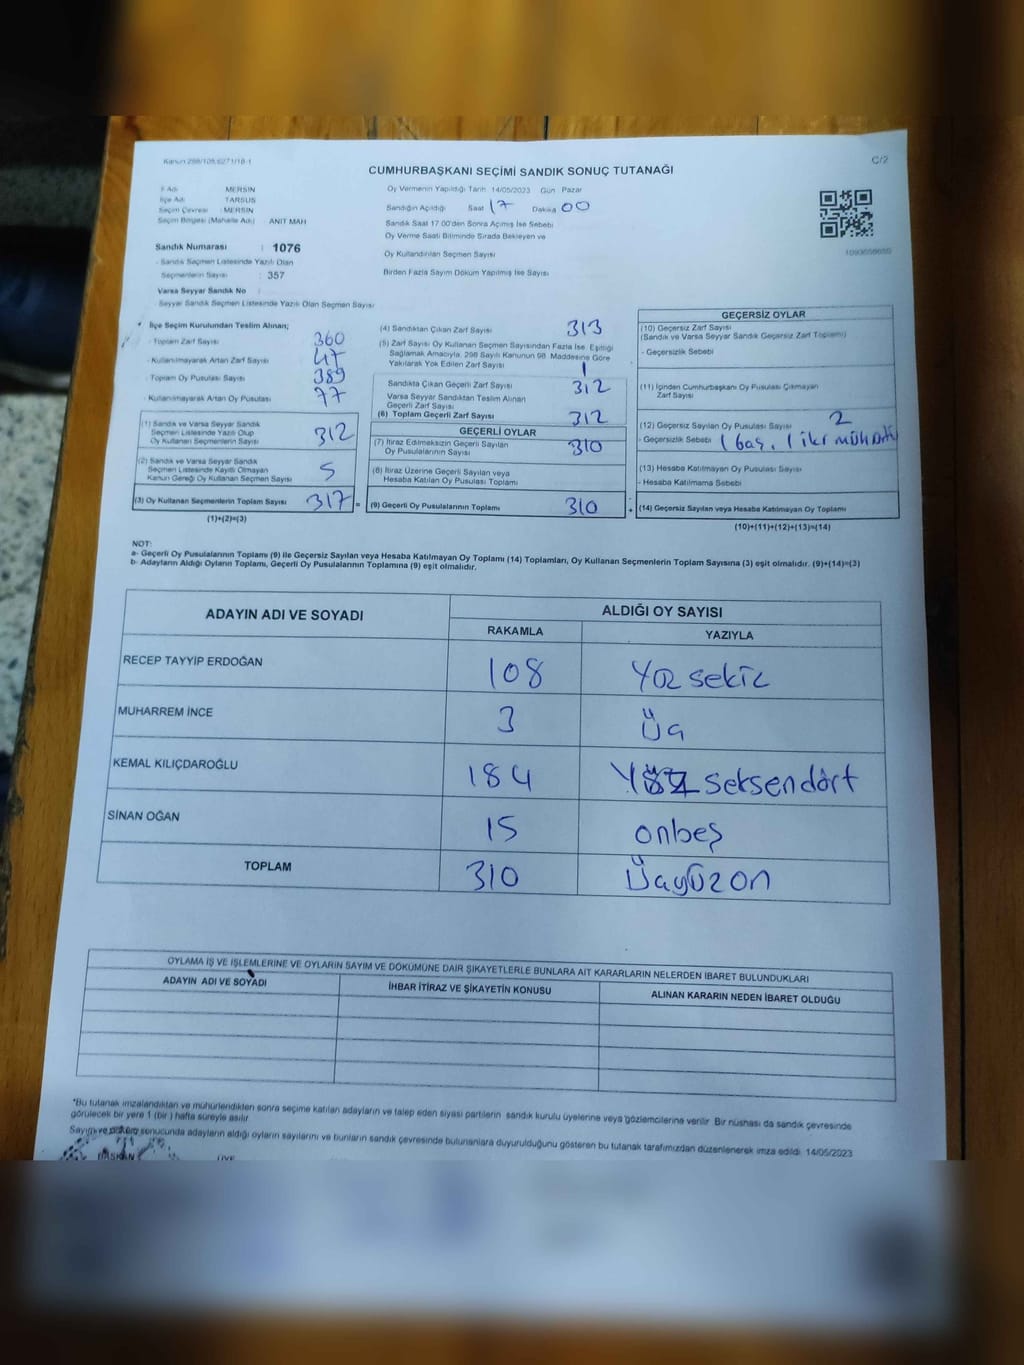 Kanun 298/105,6271/18-1
C/2
CUMHURBAŞKANI SEÇİMİ SANDIK SONUÇ TUTANAĞI
İl Adı MERSİN
İlçe Adı TARSUS
Seçim Çevresi : MERSİN
Seçim Bölgesi (Mahalle Adı) ANIT MAH
Sandık Numarası : 1076
- Sandık Seçmen Listesinde Yazılı Olan
Seçmenlerin Sayısı : 357
Varsa Seyyar Sandık No :
- Seyyar Sandık Seçmen Listesinde Yazılı Olan Seçmen Sayısı
Oy Vermenin Yapıldığı Tarih 14/05/2023 Gün Pazar
Sandığın Açıldığı Saat 17 Dakika 00
Sandık Saat 17.00'den Sonra Açılmış İse Sebebi
Oy Verme Saati Bitiminde Sırada Bekleyen ve
Oy Kullandırılan Seçmen Sayısı
Birden Fazla Sayım Döküm Yapılmış İse Sayısı
1093658650
* İlçe Seçim Kurulundan Teslim Alınan;
- Toplam Zarf Sayısı 360
- Kullanılmayarak Artan Zarf Sayısı 47
- Toplam Oy Pusulası Sayısı 389
- Kullanılmayarak Artan Oy Pusulası 77
(1) Sandık ve Varsa Seyyar Sandık
Seçmen Listesinde Yazılı Olup
Oy Kullanan Seçmenlerin Sayısı 312
(2) Sandık ve Varsa Seyyar Sandık
Seçmen Listesine Kayıtlı Olmayan
Kanun Gereği Oy Kullanan Seçmen Sayısı 5
(3) Oy Kullanan Seçmenlerin Toplam Sayısı 317 =
(1)+(2)=(3)
(4) Sandıktan Çıkan Zarf Sayısı 313
(5) Zarf Sayısı Oy Kullanan Seçmen Sayısından Fazla İse, Eşitliği
Sağlamak Amacıyla, 298 Sayılı Kanunun 98. Maddesine Göre
Yakılarak Yok Edilen Zarf Sayısı 1
Sandıkta Çıkan Geçerli Zarf Sayısı 312
Varsa Seyyar Sandıktan Teslim Alınan
Geçerli Zarf Sayısı
(6) Toplam Geçerli Zarf Sayısı 312
GEÇERLİ OYLAR
(7) İtiraz Edilmeksizin Geçerli Sayılan
Oy Pusulalarının Sayısı 310
(8) İtiraz Üzerine Geçerli Sayılan veya
Hesaba Katılan Oy Pusulası Toplamı
(9) Geçerli Oy Pusulalarının Toplamı 310 +
GEÇERSİZ OYLAR
(10) Geçersiz Zarf Sayısı
(Sandık ve Varsa Seyyar Sandık Geçersiz Zarf Toplamı)
- Geçersizlik Sebebi
(11) İçinden Cumhurbaşkanı Oy Pusulası Çıkmayan
Zarf Sayısı
(12) Geçersiz Sayılan Oy Pusulası Sayısı 2
- Geçersizlik Sebebi 1 boş, 1 iki mühürlü
(13) Hesaba Katılmayan Oy Pusulası Sayısı
- Hesaba Katılmama Sebebi
(14) Geçersiz Sayılan veya Hesaba Katılmayan Oy Toplamı
(10)+(11)+(12)+(13)=(14)
NOT:
a- Geçerli Oy Pusulalarının Toplamı (9) ile Geçersiz Sayılan veya Hesaba Katılmayan Oy Toplamı (14) Toplamları, Oy Kullanan Seçmenlerin Toplam Sayısına (3) eşit olmalıdır. (9)+(14)=(3)
b- Adayların Aldığı Oyların Toplamı, Geçerli Oy Pusulalarının Toplamına (9) eşit olmalıdır.
ADAYIN ADI VE SOYADI ALDIĞI OY SAYISI
RAKAMLA YAZIYLA
RECEP TAYYİP ERDOĞAN 108 Yüz sekiz
MUHARREM İNCE 3 Üç
KEMAL KILIÇDAROĞLU 184 Yüz seksendört
SİNAN OĞAN 15 onbeş
TOPLAM 310 Üçyüzon
OYLAMA İŞ VE İŞLEMLERİNE VE OYLARIN SAYIM VE DÖKÜMÜNE DAİR ŞİKAYETLERLE BUNLARA AİT KARARLARIN NELERDEN İBARET BULUNDUKLARI
ADAYIN ADI VE SOYADI İHBAR İTİRAZ VE ŞİKAYETİN KONUSU ALINAN KARARIN NEDEN İBARET OLDUĞU
"Bu tutanak imzalandıktan ve mühürlendikten sonra seçime katılan adayların ve talep eden siyasi partilerin sandık kurulu üyelerine veya gözlemcilerine verilir. Bir nüshası da sandık çevresinde
görülecek bir yere 1 (bir) hafta süreyle asılır
Sayım ve döküm sonucunda adayların aldığı oyların sayılarını ve bunların sandık çevresinde bulunanlara duyurulduğunu gösteren bu tutanak tarafımızdan düzenlenerek imza edildi. 14/05/2023
BAŞKAN ÜYE